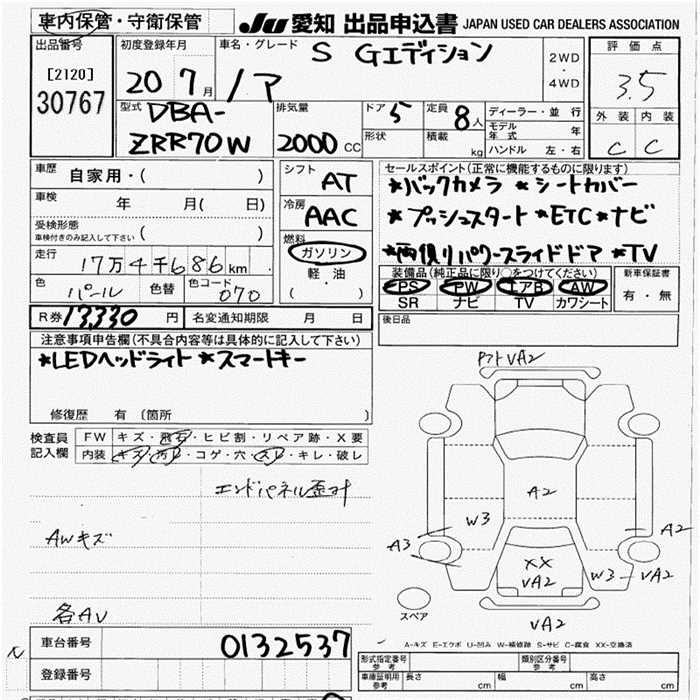 車内保管・守衛保管 JU 愛知 出品申込書 JAPAN USED CAR DEALERS ASSOCIATION
出品番号 [2120] 30767
初度登録年月 20 7月
車名・グレード ノア S Gエディション
2WD・4WD
評価点 3.5
外装 C 内装 C
型式 DBA-ZRR70W
排気量 2000 CC
ドア 5
形状
定員 8人
積載 kg
ディーラー・並行
モデル年式 年
ハンドル 左・右
車歴 自家用・( )
車検 年 月( 日)
受検形態 車検付きのみ記入して下さい ( )
走行 17万4千686km
色 パール 色替 色コード 070
シフト AT
冷房 AAC
燃料 ガソリン
軽・油
( )
セールスポイント(正常に機能するものに限ります)
*バックカメラ *シートカバー
*プッシュスタート*ETC*ナビ
*両側りパワースライドドア *TV
装備品(純正品に限り○をつけてください)
PS PW エアB AW
SR ナビ TV カワシート
新車保証書 有・無
R券 13,330 円 名変通知期限 月 日
後日品
注意事項申告欄(不具合内容等は具体的に記入して下さい)
*LEDヘッドライト *スマートキー
修復歴 有 (箇所 )
検査員記入欄
FW キズ・飛石・ヒビ割・リペア跡・X要
内装 キズ・汚レ・コゲ・穴・スレ・キレ・破レ
エンドパネル歪み
AWキズ
各AU
VA2
A2
W3
A2
A3
XX
VA2
W3
VA2
スペア
VA2
A-キズ E-エクボ U-凹み W-補修跡 S-サビ C-腐食 XX-交換済
車台番号 0132537
登録番号
形式指定番号 参考
類別区分番号 参考
車庫証明用 参考 長さ cm 幅 cm 高さ cm